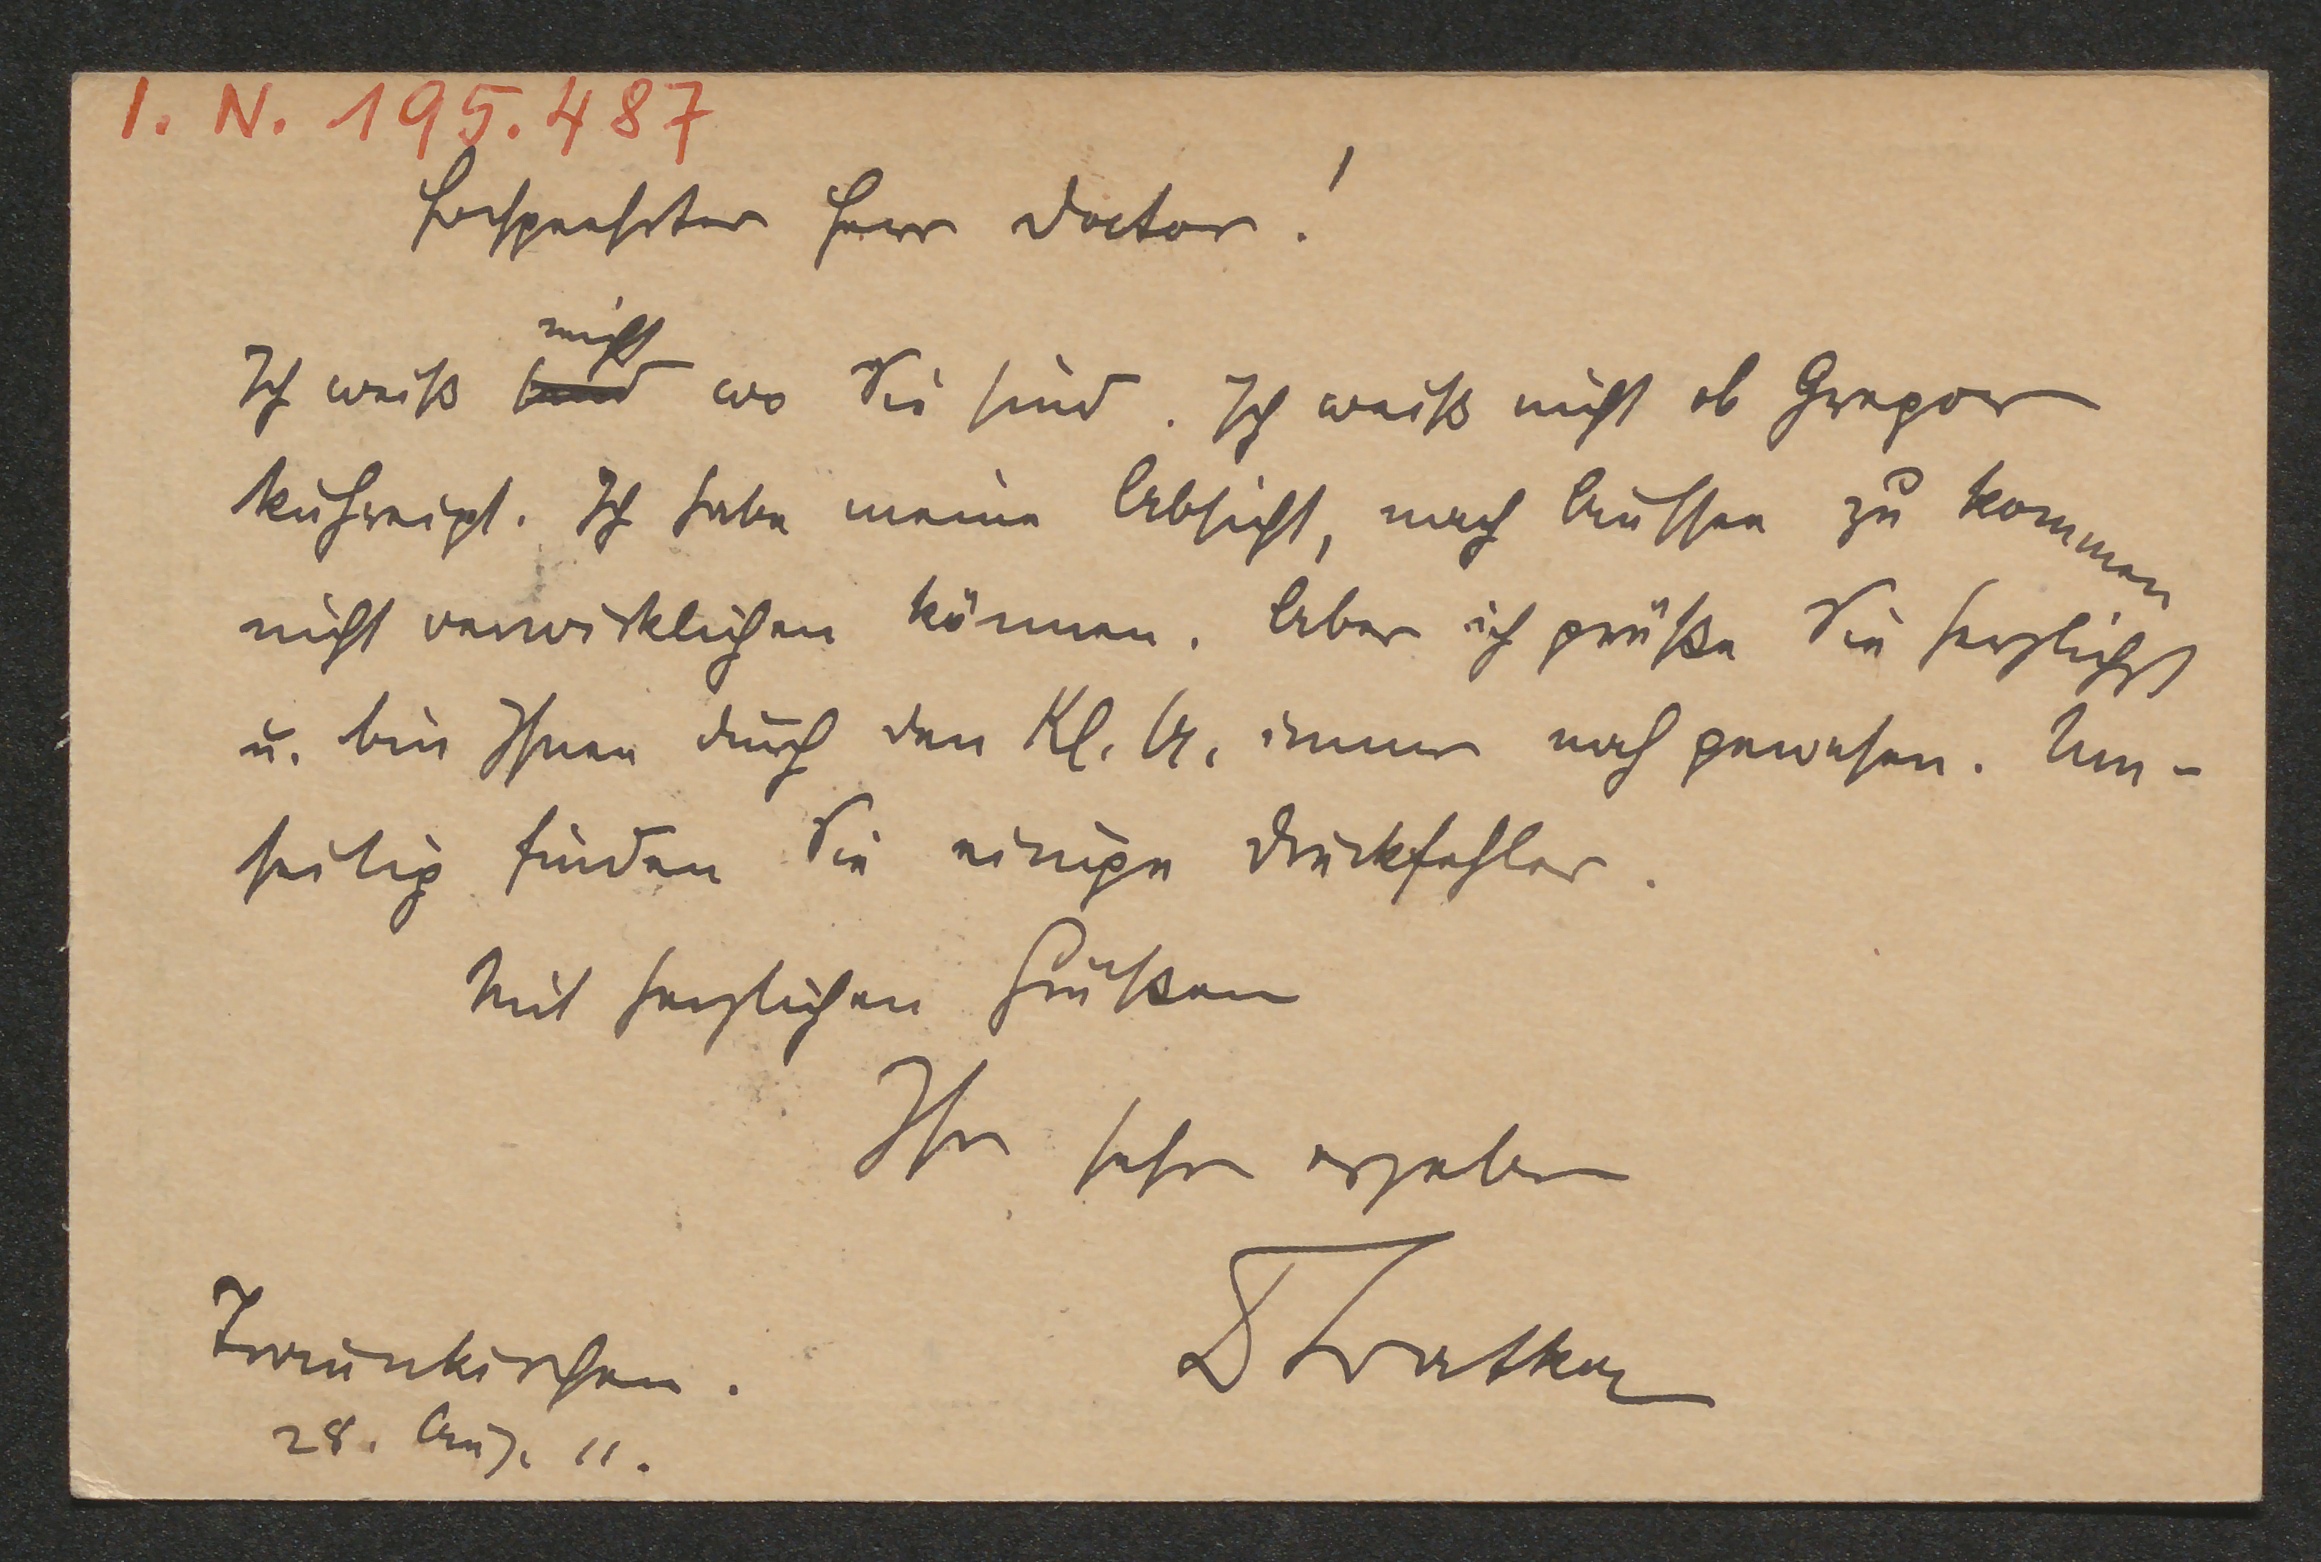 I. N. 195.487
Hochgeehrter Herr Doctor!
nicht
Ich weiß wo Sie sind. Ich weiß nicht ob Gregor
kuhreigt. Ich habe meine Absicht, nach Aussee zu kommen
nicht verwirklichen können. Aber ich grüße Sie herzlichst
u. bin Ihnen durch den Kl. A. immer nah gewesen. Um-
seitig finden Sie einige Druckfehler.
Mit herzlichen Grüßen
Ihr sehr ergeben
Traunkirchen.
28. Aug. 11.